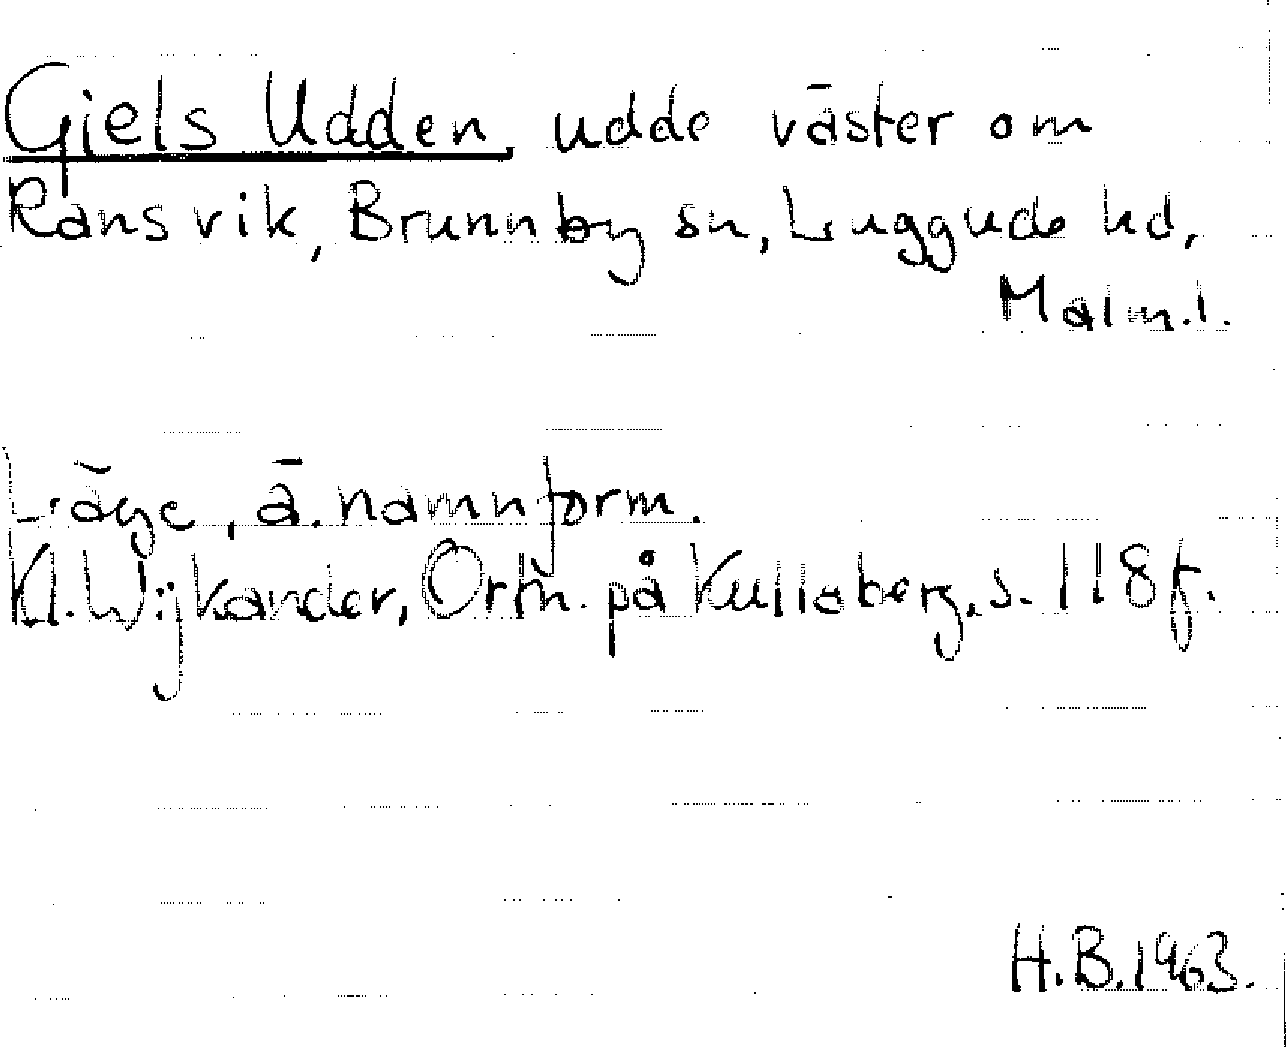 Giels Udden, udde väster om
Ransvik, Brunnby sn, Luggude hd,
Malm.l.
Läge, ä. namnform.
Kl. Wijkander, Ortn. på Kullaberg, s. 118 f.
H.B. 1963.